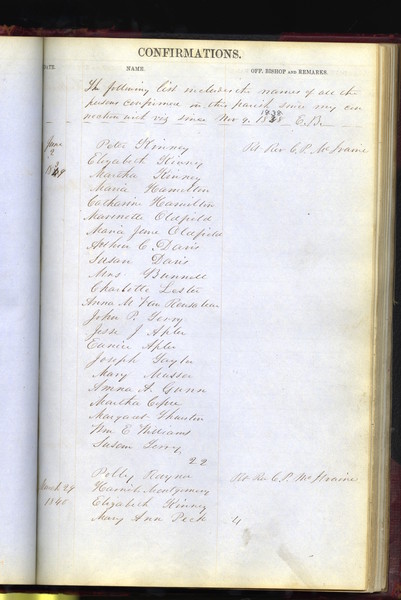 CONFIRMATIONS.
DATE. NAME. OFF. BISHOP AND REMARKS.
The following list includes the names of all the
persons confirmed in this parish since my con
nection with viz since Nov 9. 1838 E.B.
June Peter Kinney Rt Rev C.P. McIlvaine
9 Elizabeth Kinney
1839 Martha Kinney
Maria Hamilton
Catharine Hamilton
Marinette Oldfield
Maria Jane Oldfield
Arthur C. Davis
Susan Davis
Mrs Bunnell
Charlotte Lester
Anna M Van Rensselaer
John P. Terry
Jesse J Apler
Eunice Apler
Joseph Taylor
Mary Masser
Anna A. Gunn
Martha
Margaret
Wm E Williams
Susan Terry,
22
Polly Raynor Rt Rev C.P. McIlvaine
March 29 Harriet Montgomery
1840 Elizabeth Kinney
Mary Ana Peck 4